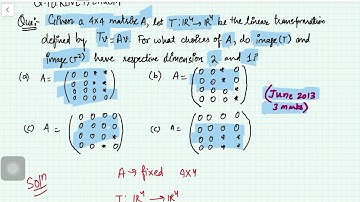 Que: Given a 4x4 matrix A, let T: ℝ⁴→ℝ⁴ be the linear transformation
defined by Tv = Av. For what choices of A, do image(T) and
image(T²) have respective dimension 2 and 1?
(a) A = (0 0 * *
0 0 * *
0 0 0 *
0 0 0 0)
(b) A = (0 0 * 0
0 0 * 0
0 0 0 *
0 0 0 *)
(June 2013
3 marks)
(c) A = (0 0 0 0
0 0 0 0
0 0 0 *
0 0 * 0)
(c) A = (0 0 0 0
0 0 0 0
0 0 * *
0 0 * *)
Solⁿ
A → fixed 4x4
T: ℝ⁴ → ℝ⁴